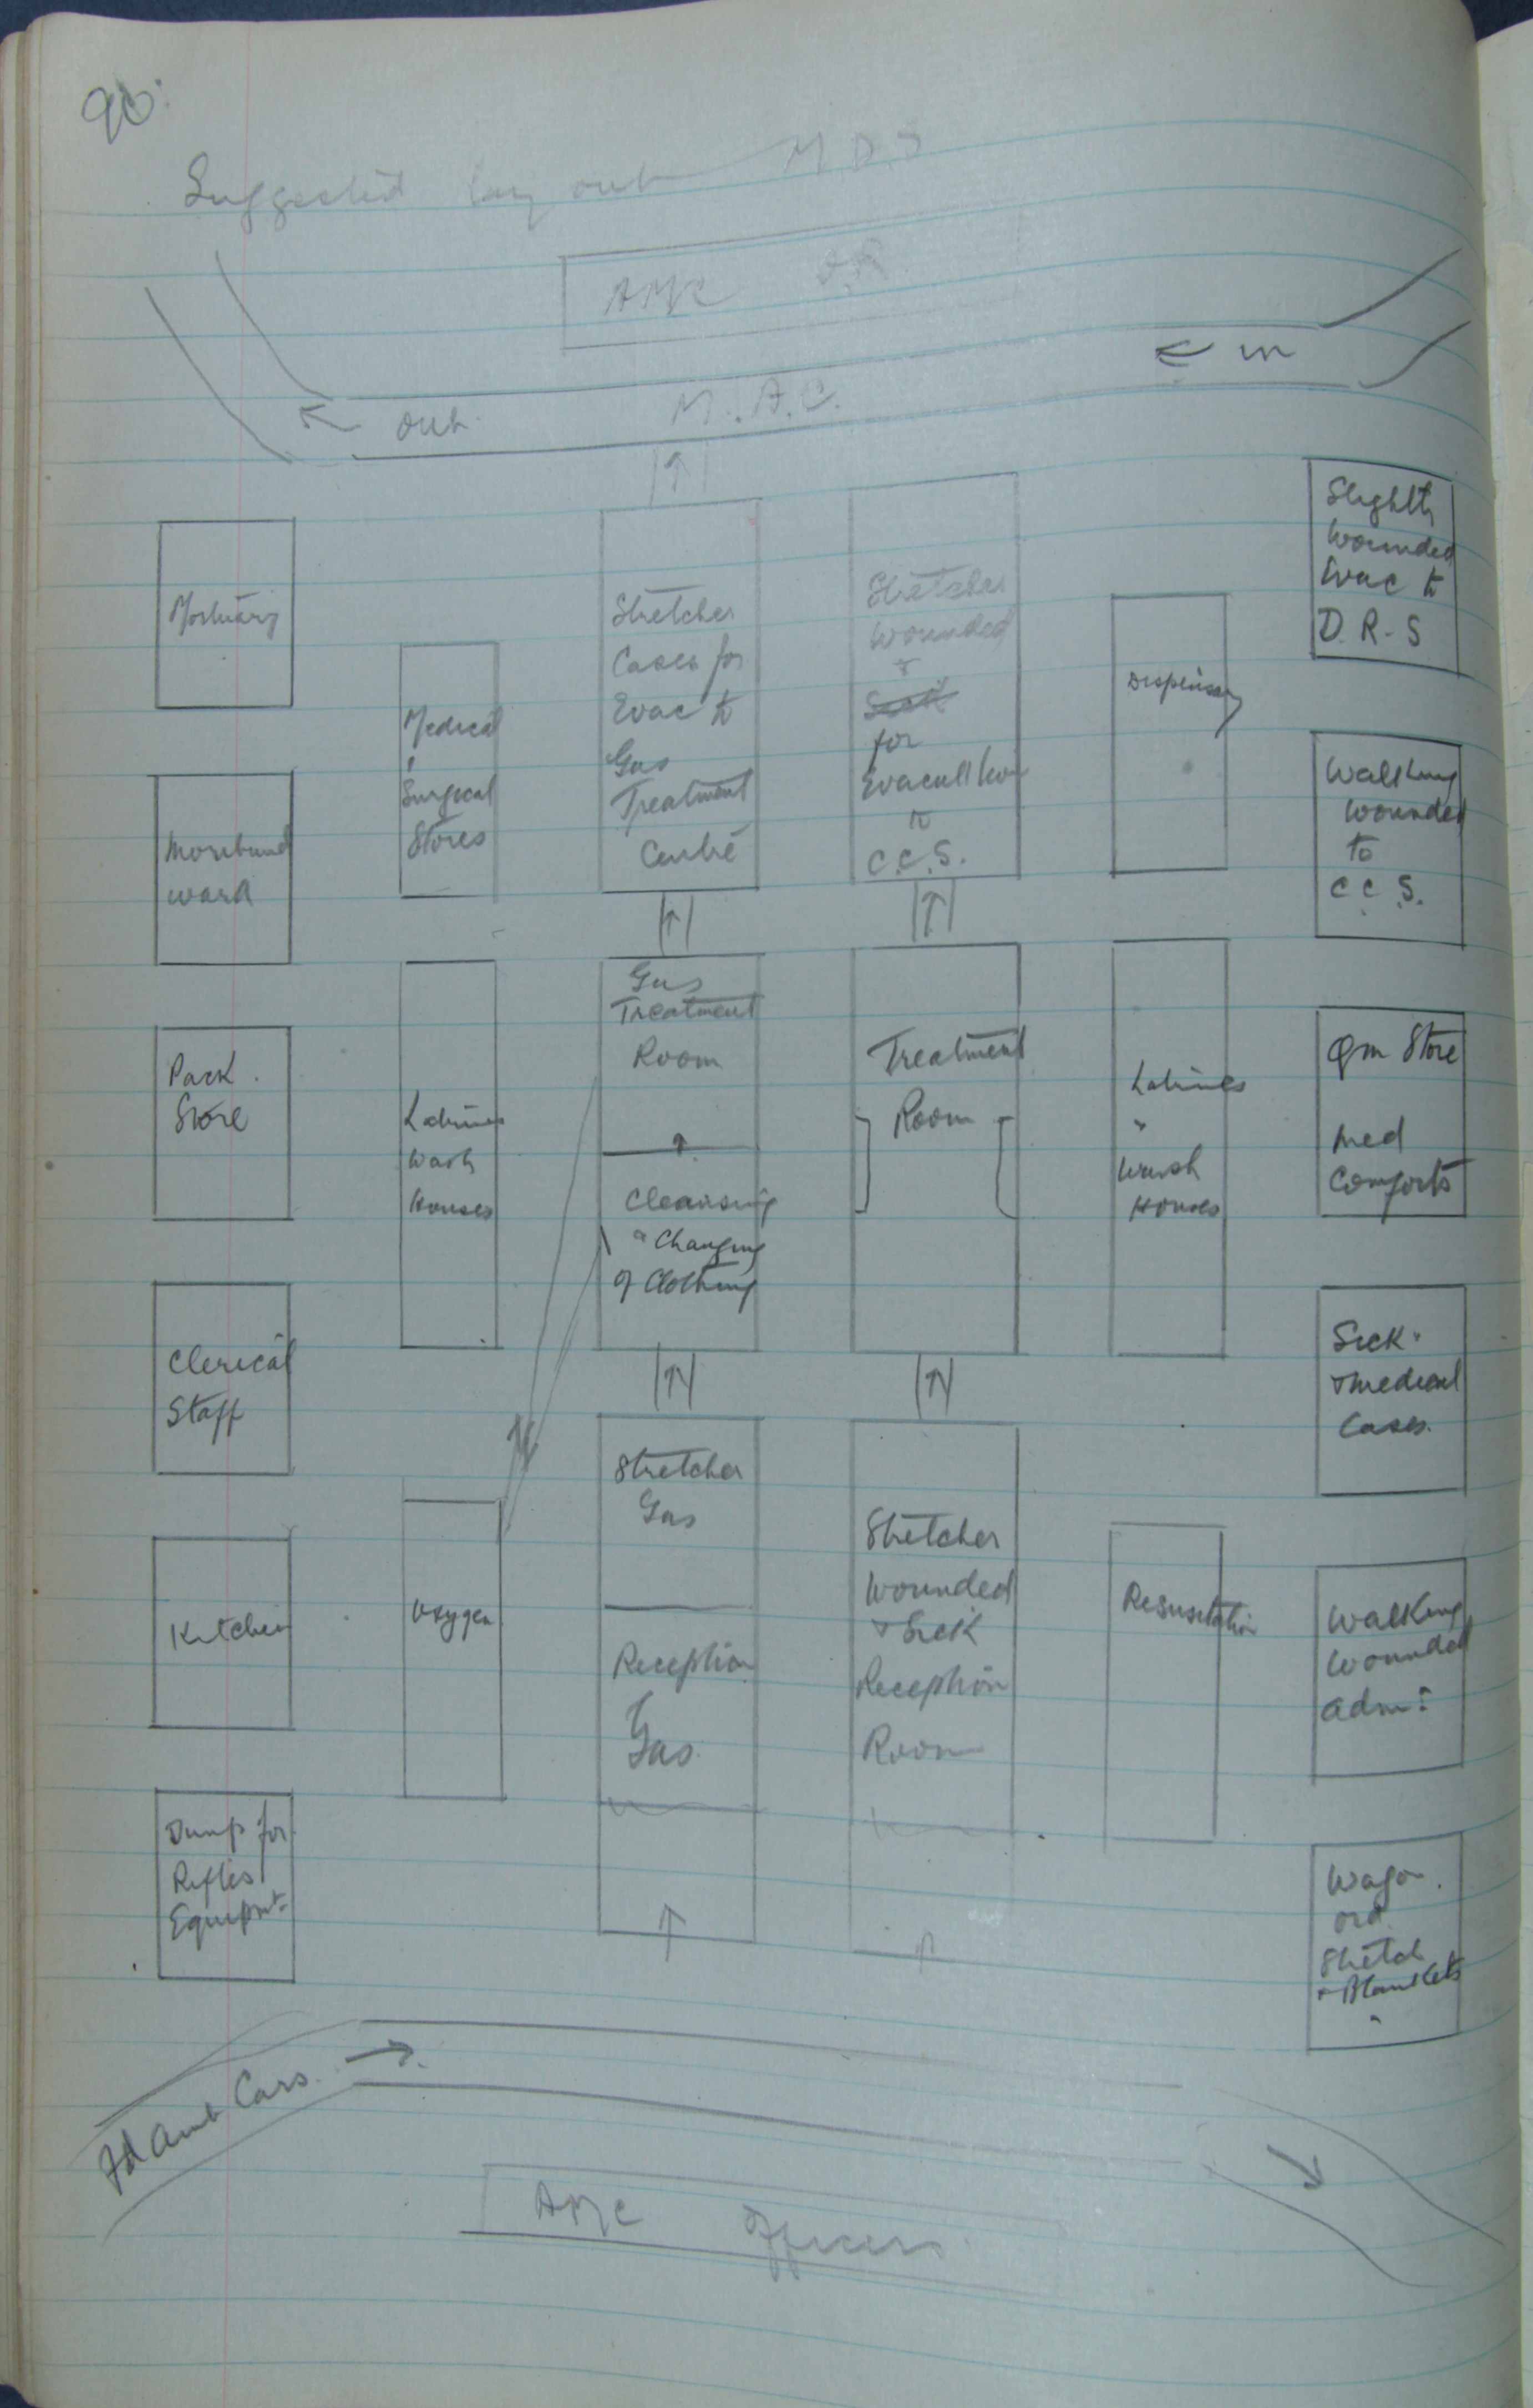 90.
Suggested lay out M D S
AMC O.R
← in
← out.
M. A. C.
Mortuary
Moribund
ward
Pack.
Store
Clerical
Staff
Kitchen
Dump for
Rifles
Equipmt
Medical
&
Surgical
Stores
Latrines
Wash
Houses
Oxygen
Stretcher
Cases for
Evac to
Gas
Treatment
Centre
Gas
Treatment
Room
Cleansing
& Changing
of Clothing
Stretcher
Gas
Reception
Gas
Stretcher
Wounded
&
Sick
for
Evacuation
to
C.C.S.
Treatment
Room
Stretcher
Wounded
& Sick
Reception
Room
Dispensary
Latrines
"
Wash
Houses
Resusitation
Slightly
Wounded
Evac to
D. R. S
Walking
Wounded
to
C. C. S.
Qm Store
Med
Comforts
Sick
& Medical
Cases.
Walking
Wounded
Adm:
Wagon.
Ord
Stretch
& Blankets
Fd Amb Cars. →
AMC Officers